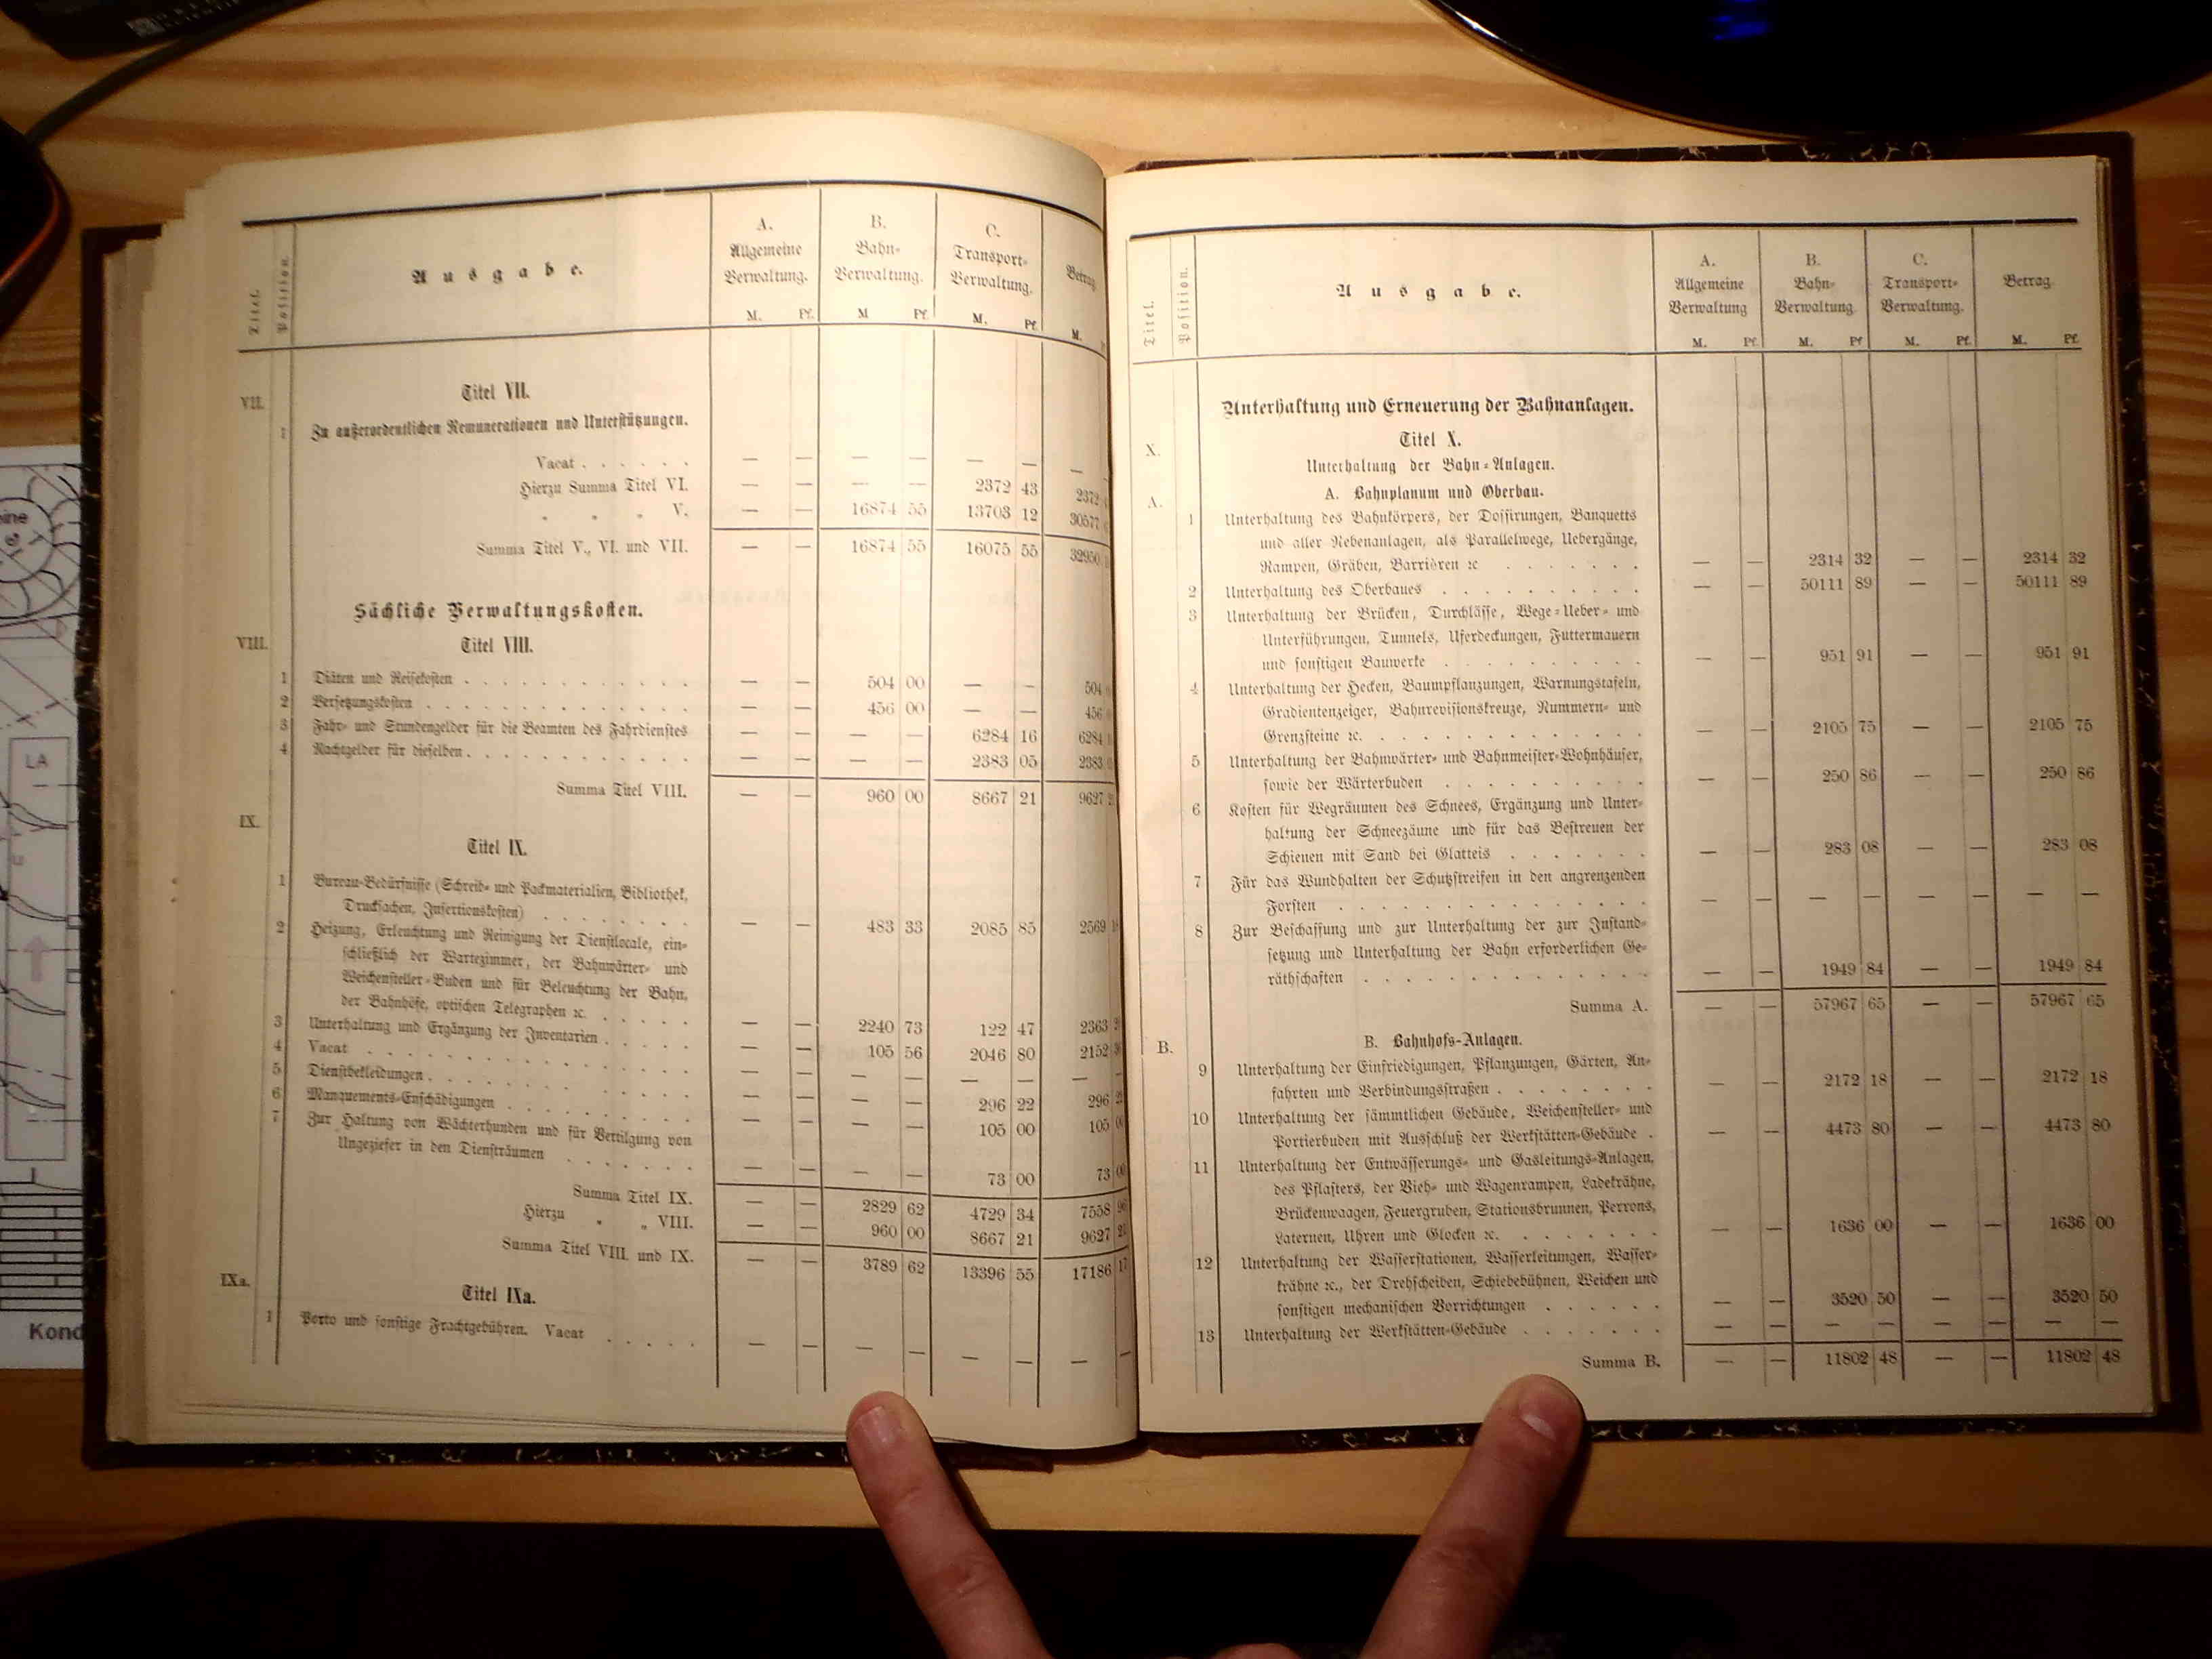 Titel.
Position.
Ausgabe.
A.
Allgemeine
Verwaltung.
B.
Bahn-
Verwaltung.
C.
Transport-
Verwaltung.
Betrag
M. Pf. M Pf. M. Pf. M.
VII.
Titel VII.
1 Zu außerordentlichen Remunerationen und Unterstützungen.
Vacat . . . . . — — — — — — —
Hierzu Summa Titel VI. — — — — 2372 43 2372
" " " V. — — 16874 55 13703 12 30577
Summa Titel V., VI. und VII. — — 16874 55 16075 55 32950
Sächliche Verwaltungskosten.
VIII.
Titel VIII.
1 Diäten und Reisekosten . . . . . . . . . . — — 504 00 — — 504
2 Versetzungskosten . . . . . . . . . . . . — — 456 00 — — 456
3 Fahr- und Stundengelder für die Beamten des Fahrdienstes — — — — 6284 16 6284
4 Nachtgelder für dieselben . . . . . . . . . . — — — — 2383 05 2383
Summa Titel VIII. — — 960 00 8667 21 9627
IX.
Titel IX.
1 Bureau-Bedürfnisse (Schreib- und Packmaterialien, Bibliothek,
Drucksachen, Insertionskosten) . . . . . . . — — 483 33 2085 85 2569
2 Heizung, Erleuchtung und Reinigung der Dienstlocale, ein-
schließlich der Wartezimmer, der Bahnwärter- und
Weichensteller-Buden und für Beleuchtung der Bahn,
der Bahnhöfe, optischen Telegraphen ꝛc. . . . . . — — 2240 73 122 47 2363
3 Unterhaltung und Ergänzung der Inventarien . . . . . — — 105 56 2046 80 2152
4 Vacat . . . . . . . . . . . . . — — — — — — — —
5 Dienstbekleidungen . . . . . . . . . . . — — — — 296 22 296
6 Manquements-Enschädigungen . . . . . . . . . — — — — 105 00 105
7 Zur Haltung von Wächterhunden und für Vertilgung von
Ungeziefer in den Diensträumen . . . . . . . — — — — 73 00 73
Summa Titel IX. — — 2829 62 4729 34 7558
Hierzu " " VIII. — — 960 00 8667 21 9627
Summa Titel VIII. und IX. — — 3789 62 13396 55 17186 17
IXa.
Titel IXa.
1 Porto und sonstige Frachtgebühren. Vacat . . . . . — — — — — — — —
Titel.
Position.
Ausgabe.
A.
Allgemeine
Verwaltung
B.
Bahn-
Verwaltung.
C.
Transport-
Verwaltung.
Betrag.
M. Pf. M. Pf M. Pf. M. Pf.
Unterhaltung und Erneuerung der Bahnanlagen.
X.
Titel X.
Unterhaltung der Bahn-Anlagen.
A.
A. Bahnplanum und Oberbau.
1 Unterhaltung des Bahnkörpers, der Dossirungen, Banquetts
und aller Nebenanlagen, als Parallelwege, Uebergänge,
Rampen, Gräben, Barrièren ꝛc . . . . . . . — — 2314 32 — — 2314 32
2 Unterhaltung des Oberbaues . . . . . . . . . . — — 50111 89 — — 50111 89
3 Unterhaltung der Brücken, Durchlässe, Wege-Ueber- und
Unterführungen, Tunnels, Uferdeckungen, Futtermauern
und sonstigen Bauwerke . . . . . . . . . — — 951 91 — — 951 91
4 Unterhaltung der Hecken, Baumpflanzungen, Warnungstafeln,
Gradientenzeiger, Bahnrevisionskreuze, Nummern- und
Grenzsteine ꝛc. . . . . . . . . . . . . — — 2105 75 — — 2105 75
5 Unterhaltung der Bahnwärter- und Bahnmeister-Wohnhäuser,
sowie der Wärterbuden . . . . . . . . . — — 250 86 — — 250 86
6 Kosten für Wegräumen des Schnees, Ergänzung und Unter-
haltung der Schneezäune und für das Bestreuen der
Schienen mit Sand bei Glatteis . . . . . . . — — 283 08 — — 283 08
7 Für das Wundhalten der Schutzstreifen in den angrenzenden
Forsten . . . . . . . . . . . . . . — — — — — — — —
8 Zur Beschaffung und zur Unterhaltung der zur Instand-
setzung und Unterhaltung der Bahn erforderlichen Ge-
räthschaften . . . . . . . . . . . . — — 1949 84 — — 1949 84
Summa A. — — 57967 65 — — 57967 65
B.
B. Bahnhofs-Anlagen.
9 Unterhaltung der Einfriedigungen, Pflanzungen, Gärten, An-
fahrten und Verbindungsstraßen . . . . . . . — — 2172 18 — — 2172 18
10 Unterhaltung der sämmtlichen Gebäude, Weichensteller- und
Portierbuden mit Ausschluß der Werkstätten-Gebäude . — — 4473 80 — — 4473 80
11 Unterhaltung der Entwässerungs- und Gasleitungs-Anlagen,
des Pflasters, der Vieh- und Wagenrampen, Ladekrähne,
Brückenwaagen, Feuergruben, Stationsbrunnen, Perrons,
Laternen, Uhren und Glocken ꝛc. . . . . . . . — — 1636 00 — — 1636 00
12 Unterhaltung der Wasserstationen, Wasserleitungen, Wasser-
krähne ꝛc., der Drehscheiben, Schiebebühnen, Weichen und
sonstigen mechanischen Vorrichtungen . . . . . . — — 3520 50 — — 3520 50
13 Unterhaltung der Werkstätten-Gebäude . . . . . . . — — — — — — — —
Summa B. — — 11802 48 — — 11802 48
LA
Kond